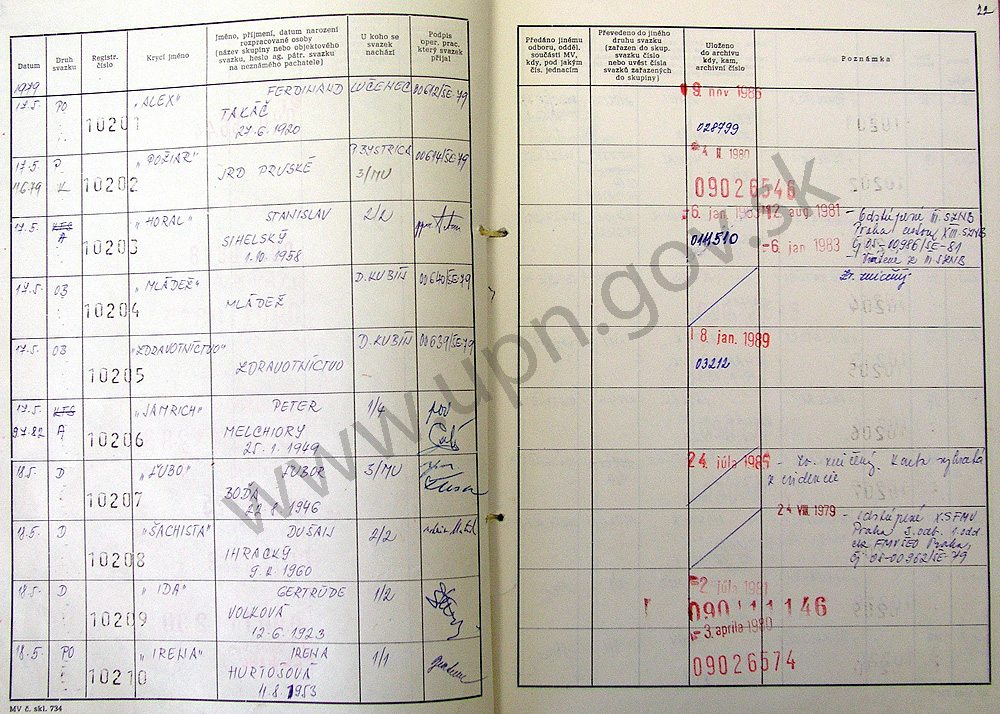 22
Datum
Druh svazku
Registr. číslo
Krycí jméno
Jméno, příjmení, datum narození
rozpracované osoby
(název skupiny nebo objektového
svazku, heslo ag. pátr. svazku
na neznámého pachatele)
U koho se
svazek
nachází
Podpis
oper. prac.
který svazek
přijal
Předáno jinému
odboru, odděl.
součásti MV,
kdy, pod jakým
čís. jednacím
Převedeno do jiného
druhu svazku
(zařazen do skup.
svazku číslo
nebo uvést čísla
svazků zařazených
do skupiny)
Uloženo
do archivu
kdy, kam,
archivní číslo
Poznámka
1979
17.5. PO 10201 "ALEX" FERDINAND LUČENEC 00612/SE-79
TAKÁČ
27.6.1920
9. nov 1986
028799
17.5. 10202 "POŽIAR" JRD PRUSKÉ B.BYSTRICA 00614/SE-79
K 3/MU
1980
09026546
17.5. KTS 10203 "HORAL" STANISLAV 2/2
A SIHELSKÝ
1.10.1958
6. jan 1983 12. aug. 1981 - Odstúpené
014510 - 6. jan 1983
Praha
Čj 05-00986/SE-81
17.5. 03 10204 "MLÁDEŽ" MLÁDEŽ D.KUBÍN 00640/SE-79
Zv. zničený
17.5. 03 10205 "ZDRAVOTNÍCTVO" ZDRAVOTNÍCTVO D.KUBÍN 00639/SE-79
18. jan. 1989
03212
17.5. KTS 10206 "JAMRICH" PETER 1/4
A MELCHIORY
25.1.1949
18.5. D 10207 "ĽUBO" ĽUBOR 3/MU
BODA
22.8.1946
24. júla 1985 - Zv. zničený. Karta vybraná
z evidencie
18.5. D 10208 "ŠACHISTA" DUŠAN 2/2
IHRACKÝ
1960
24 VIII 1979 - Odstúpené XSFMV
Praha 3.odb. 1.odd.
Praha,
Čj 05-00962/SE-79
18.5. D 10209 "IDA" GERTRÚDE 1/2
VOLKOVÁ
12.6.1923
2. júla 1981
18.5. PO 10210 "IRENA" IRENA 1/1
HURTOŠOVÁ
4.8.1953
- 3. apríla 1980
09026574
MV č. skl. 734
www.upn.gov.sk